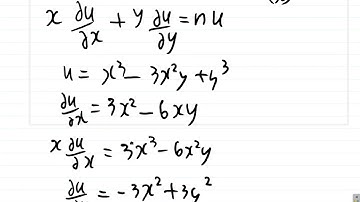 x ∂u/∂x + y ∂u/∂y = nu
u = x³ - 3x²y + y³
∂u/∂x = 3x² - 6xy
x ∂u/∂x = 3x³ - 6x²y
= -3x² + 3y²